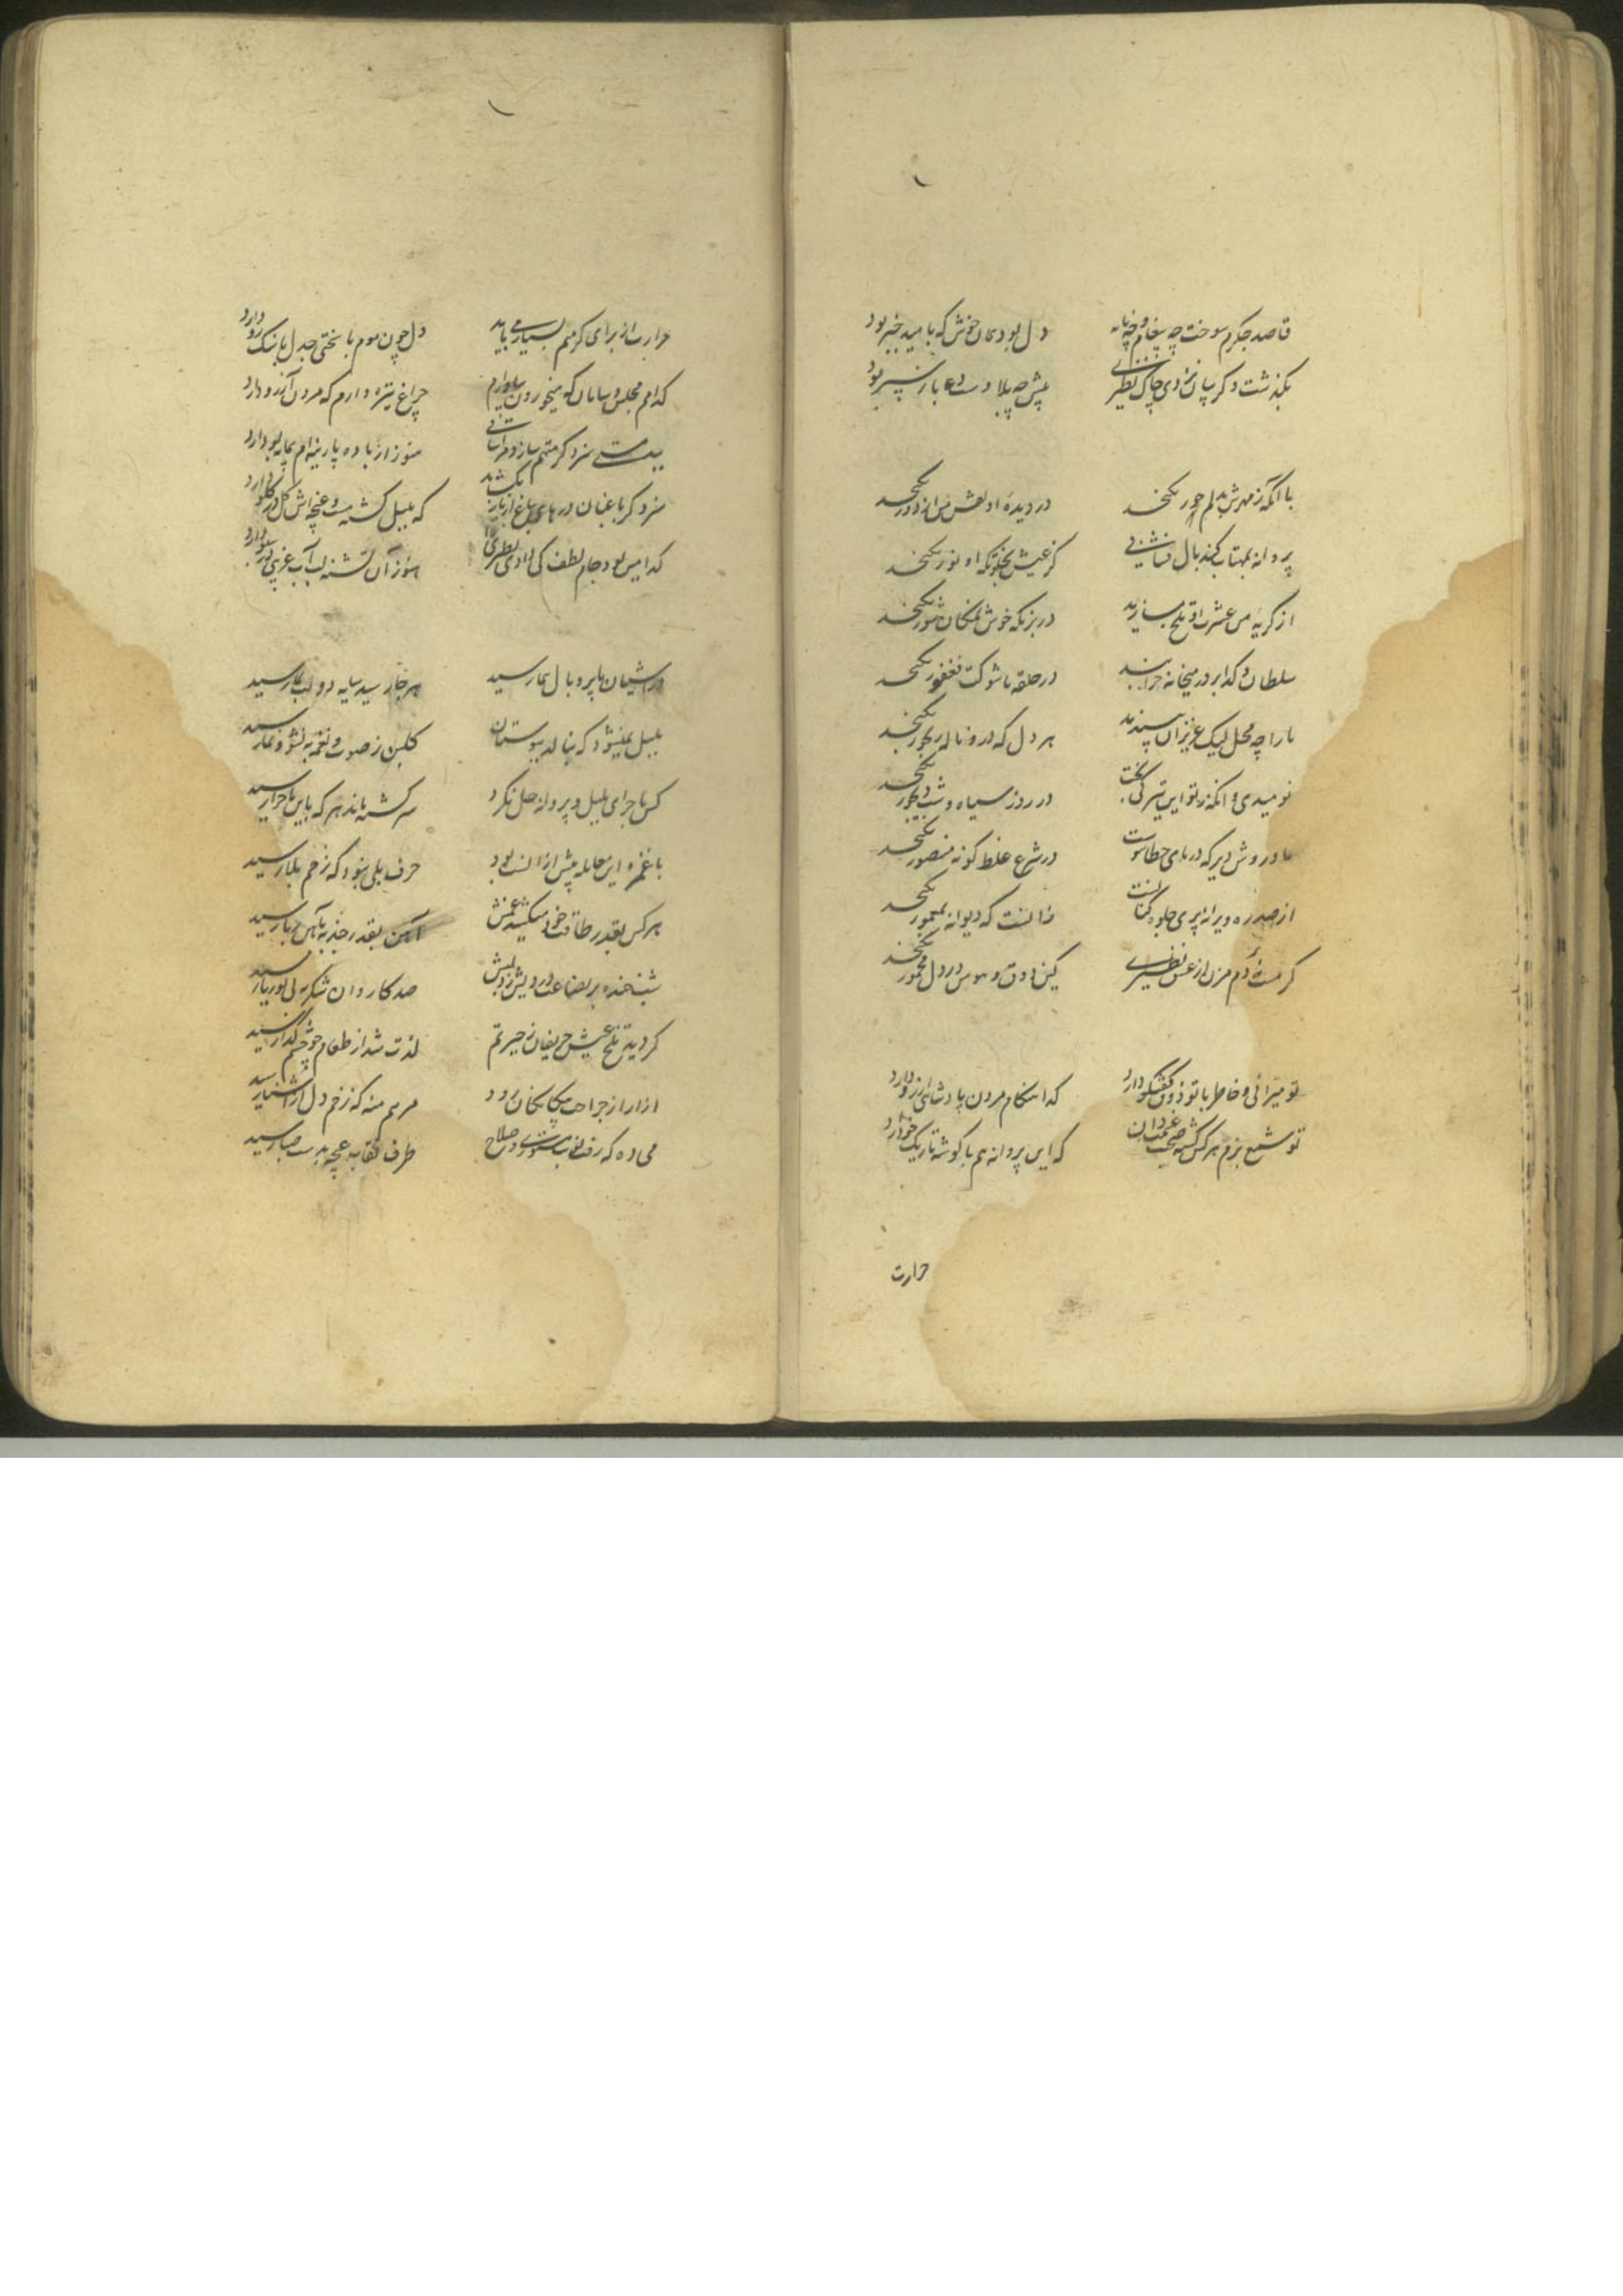 قاصد جگرم سوخت چه پیغام و چه نامه دل بود همان خوش که بامید خبر بود
بگذشت و گریبان ندادی چاک نظیری پیش چه بلا دست دعا باز سپر بود
با آنکه ز مهرش بدلم جور نگنجد در دیده او نقش من از دور نگنجد
پروانه بمهتاب کند بال فشانی کز غیرتش بخلوتگه او نور نگنجد
از گریه من عشرت او تلخ مسازید در بزمگه خوش نمکان شور نگنجد
سلطان و گدا بر در میخانه خرابند در حلقه ما شوکت فغفور نگنجد
ما را چه محل لیک عزیزان نپسندند هر دل که درو ناله رنجور نگنجد
نومیدی و آنگه ز تو این تیرگی بخت در روز سیاه و شب دیجور نگنجد
ما و روش دیر که دریای خطا اوست در شرع غلط گونه منصور نگنجد
از صد ره ویرانه پری جلوه کنانست زانست که دیوانه بمعمور نگنجد
گر مست دم مزن از عشق نظیری کین ذوق و هوس در دل مخمور نگنجد
تو میرانی و خاطر با تو ذوق گفتگو دارد گدا هنگام مردن پادشاهی آرزو دارد
تو شمع بزم هر کس گشته صحبت که این پروانه هم با گوشه تاریک خو دارد
حرارت
حرارت از برای گرمیم بسیار می باید دل چون موم با سختی جدل با سنگ و رو دارد
کدامم مجلس و سامان که میخوردن بیاد آرم چراغ تیره دارم که مردن آرزو دارد
سزد گر متهم سازد مرا ساقی هنوز از باده پارینه ام پیمانه بو دارد
سزد گر باغبان درهای باغ از ناز نگشاید که بلبل گشته مست و غنچه اش گل در گلو دارد
کدامین بود جام لطف کی دادی نظیری را هنوز آن تشنه لب آب غریبی در سبو دارد
در آشیان ما پر و بال هما رسید هر جا رسید سایه دولت بما رسید
بلبل نمیشود که ننالد ببوستان گلبن ز صوت و نغمه به نشو و نما رسید
کس ماجرای بلبل و پروانه حل نکرد سرگشته ماند هر که باین ماجرا رسید
با غمزه این معامله پیش از الست بود حرف بلی نبود که زخم بلا رسید
هر کس بقدر طاقت خود میکشد غمش آهن بقدر جذبه بآهن ربا رسید
شب خنده بر بضاعت درویش زد لبش صد کاروان شکر به نی بوریا رسید
گردید تلخ عیش حریفان ز حیرتم لذت شد از طعام چو چشم گدا رسید
آزار از جراحت پیکانگان رود مرهم منه که زخم دل از آشنا رسید
می ده که رفت نوبت مستوری و صلاح طرف نقاب غنچه بدست صبا رسید